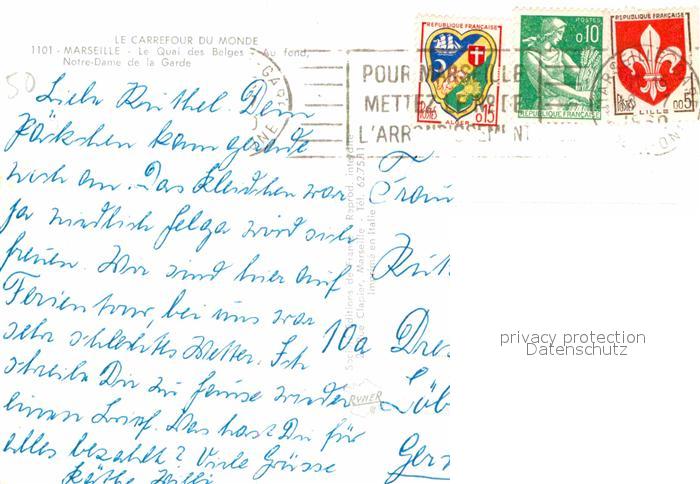 LE CARREFOUR DU MONDE
1101 - MARSEILLE - Le Quai des Belges - Au fond,
Notre-Dame de la Garde
50
REPUBLIQUE FRANÇAISE
POSTES
0,15
ALGER
POSTES
0,10
REPUBLIQUE FRANÇAISE
REPUBLIQUE FRANÇAISE
POSTES
LILLE
0,05
POUR MARSEILLE
METTEZ
L'ARRONDISSEMENT
Liebe Rüthel. Dein
Päckchen kam gerade
noch an. Das Kleidchen war
ja niedlich Helga wird sich
freuen. Wir sind hier auf
Ferientour, bei uns war
sehr schlechtes Wetter. Ich
schreibe Dir zu Hause wieder
einen Brief. Was hast Du für
alles bezahlt? Viele Grüsse
Käthe Willi
Frau
10a Dres
Löb
Ger
Reprod. interdite
Marseille - Tél. 62.75.81
Imprimé en Italie
RYNER
privacy protection
Datenschutz